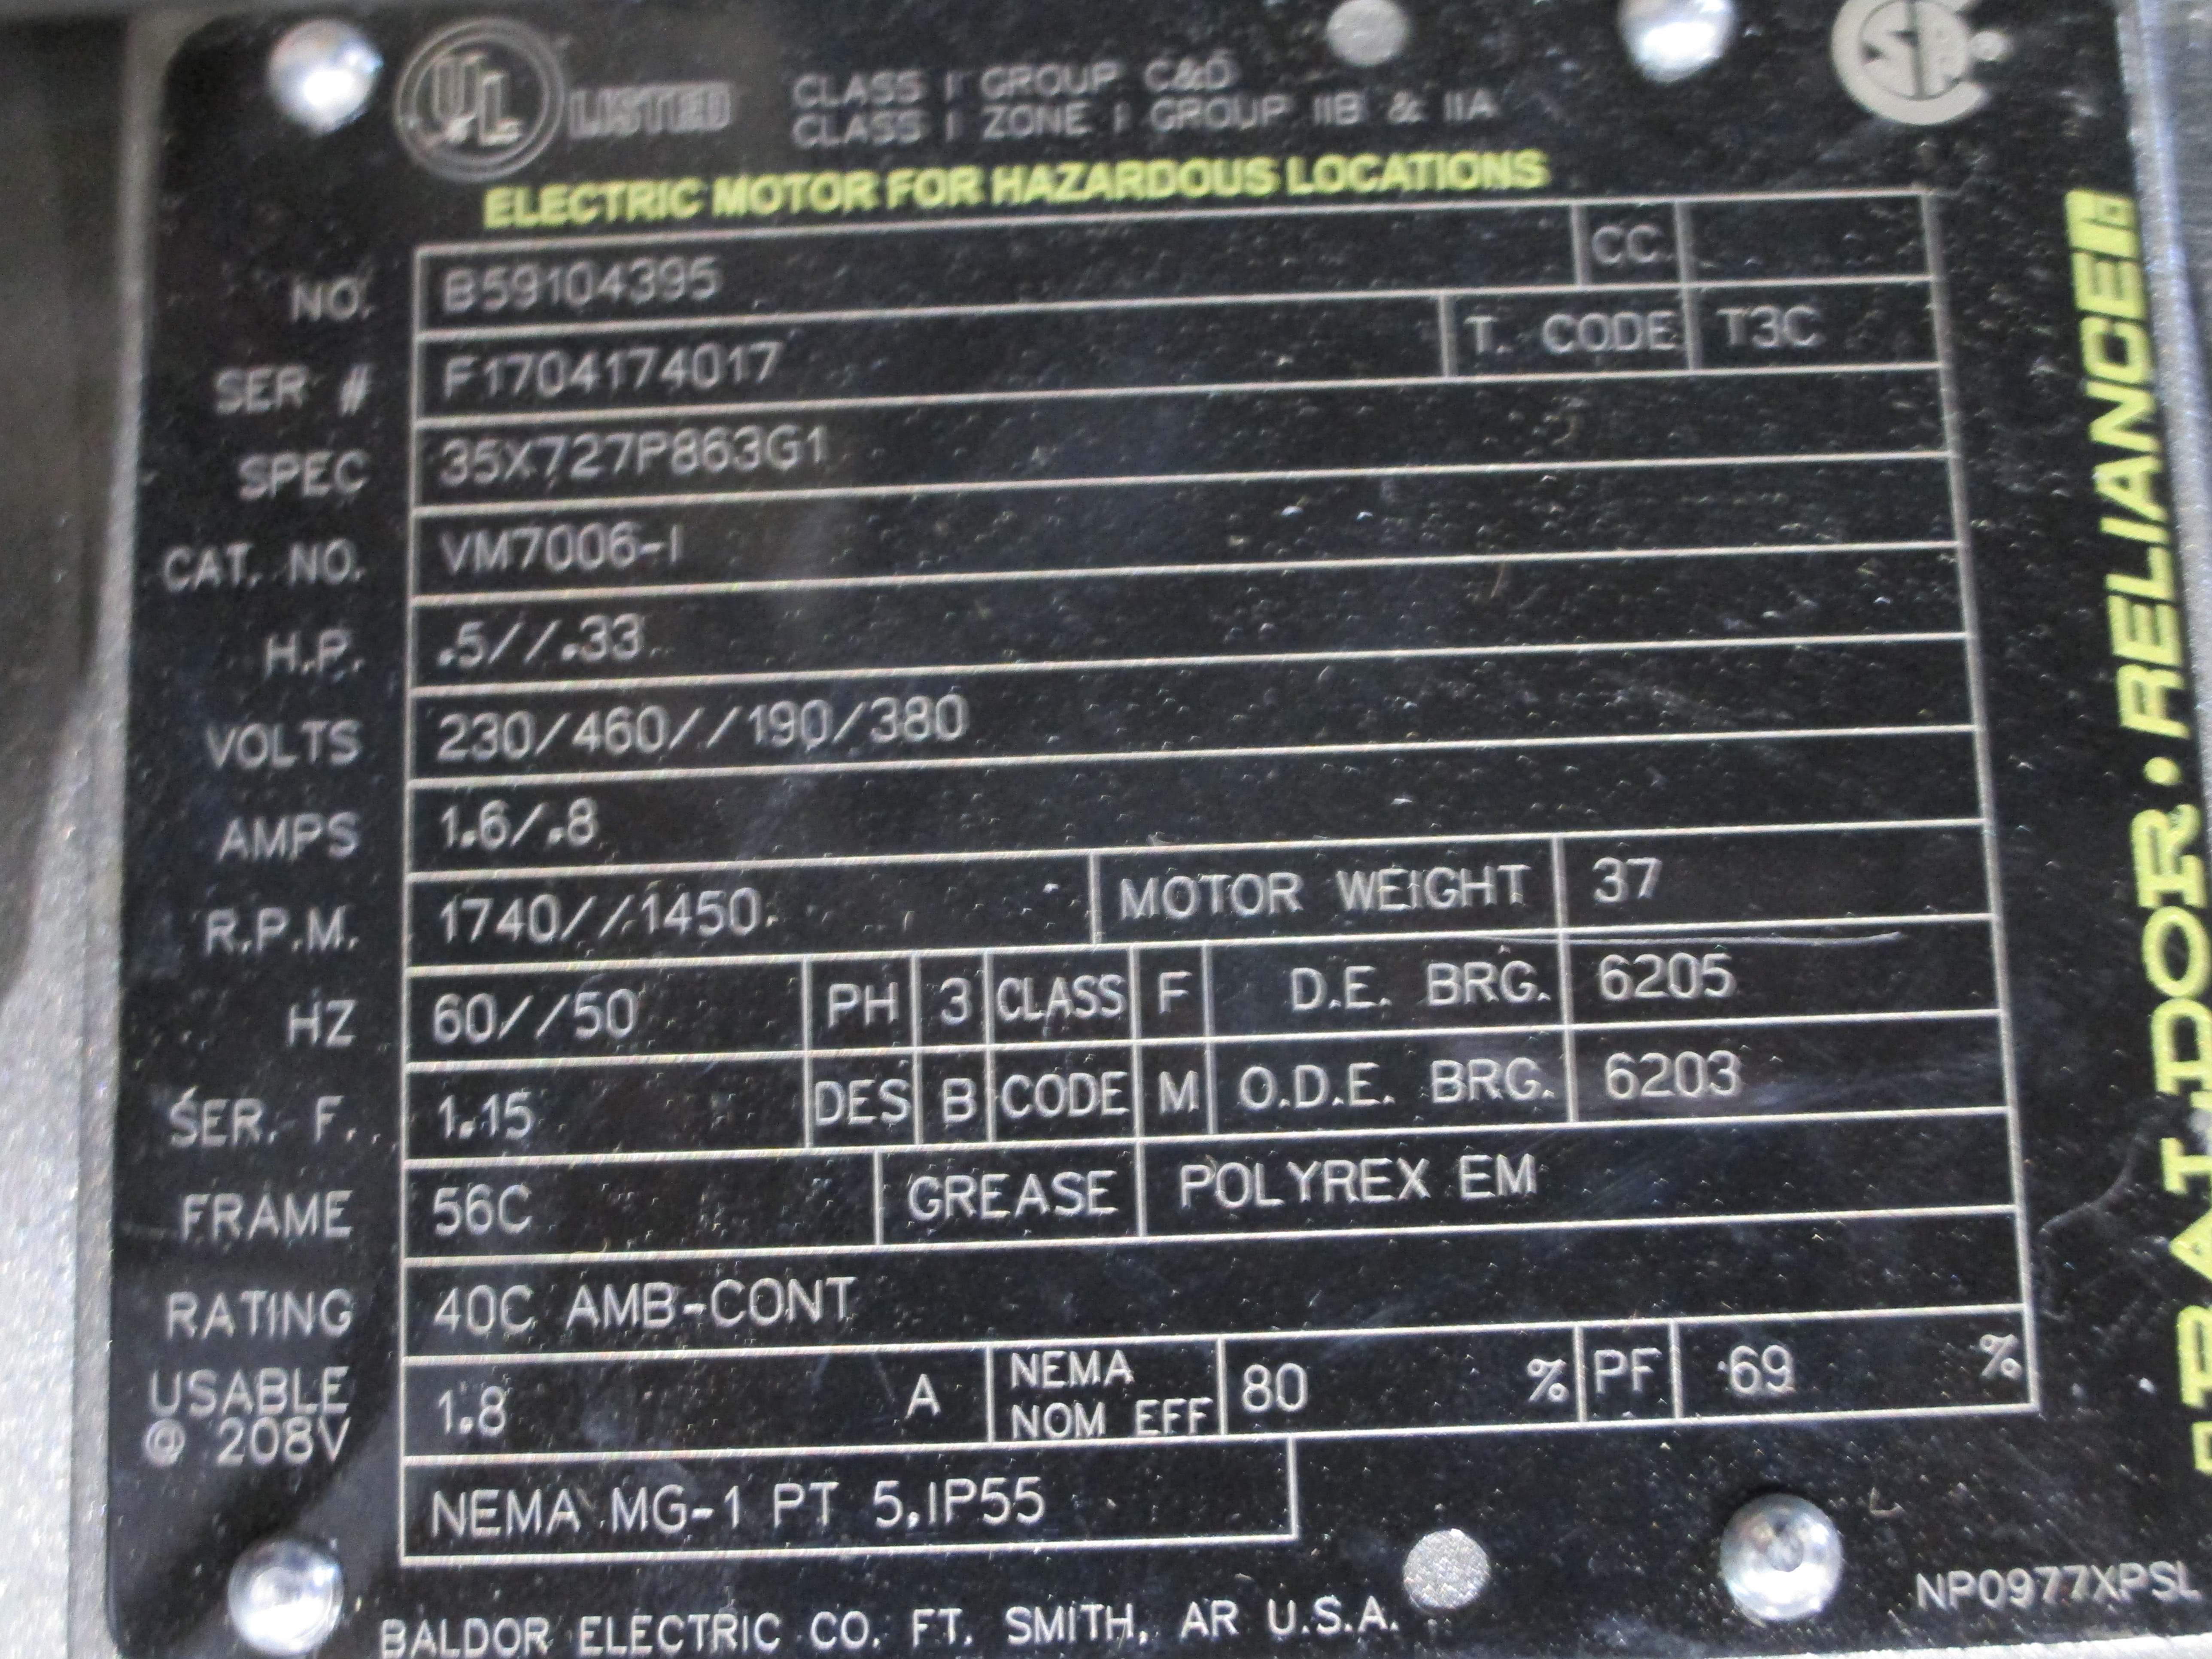 UL LISTED
CLASS I GROUP C&D
CLASS I ZONE I GROUP IIB & IIA
SA
ELECTRIC MOTOR FOR HAZARDOUS LOCATIONS
NO. B59104395 CC
SER # F1704174017 T. CODE T3C
SPEC 35X727P863G1
CAT. NO. VM7006-I
H.P. .5//.33
VOLTS 230/460//190/380
AMPS 1.6/.8
R.P.M. 1740//1450 MOTOR WEIGHT 37
HZ 60//50 PH 3 CLASS F D.E. BRG. 6205
SER. F. 1.15 DES B CODE M O.D.E. BRG. 6203
FRAME 56C GREASE POLYREX EM
RATING 40C AMB-CONT
USABLE @ 208V 1.8 A NEMA NOM EFF 80 % PF 69 %
NEMA MG-1 PT 5,IP55
BALDOR ELECTRIC CO. FT. SMITH, AR U.S.A.
NP0977XPSL
BALDOR • RELIANCE